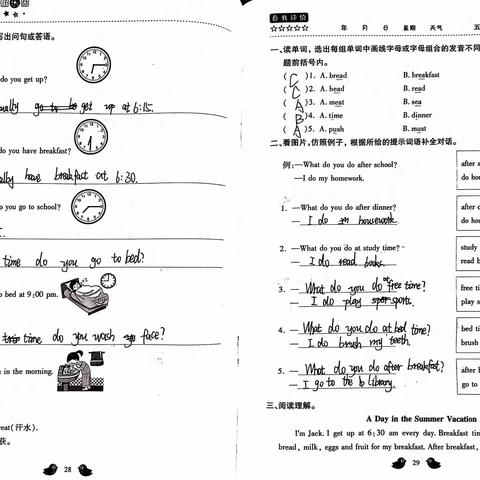 写出问句或答语。
do you get up?
ually go to get up at 6:15.
do you have breakfast?
ually have breakfast at 6:30.
do you go to school?
time do you go to bed?
o bed at 9:00 pm.
time do you wash face?
e in the morning.
eat(汗水).
获。
28
自我评价
☆☆☆☆☆ 年 月 日 星期 天气 五
一、读单词，选出每组单词中画线字母或字母组合的发音不同
题前括号内。
( C )1. A. bread B. breakfast
( C )2. A. head B. read
( A )3. A. meat B. sea
( B )4. A. time B. dinner
( A )5. A. push B. must
二、看图片,仿照例子，根据所给的提示词语补全对话。
例:—What do you do after school? after s
—I do my homework. do hor
1. —What do you do after dinner? after d
— I do housework. do hou
2. —What do you do at study time? study
— I do read books. read b
3. — What do you do at free time? free ti
— I do play sports. play s
4. — What do you do at bed time? bed ti
— I do brush my teeth. brush
5. — What do you do after breakfast? after b
— I go to the library. go to
三、阅读理解。
A Day in the Summer Vacation
I'm Jack. I get up at 6:30 am every day. Breakfast time
bread, milk, eggs and fruit for my breakfast. After breakfast,
29